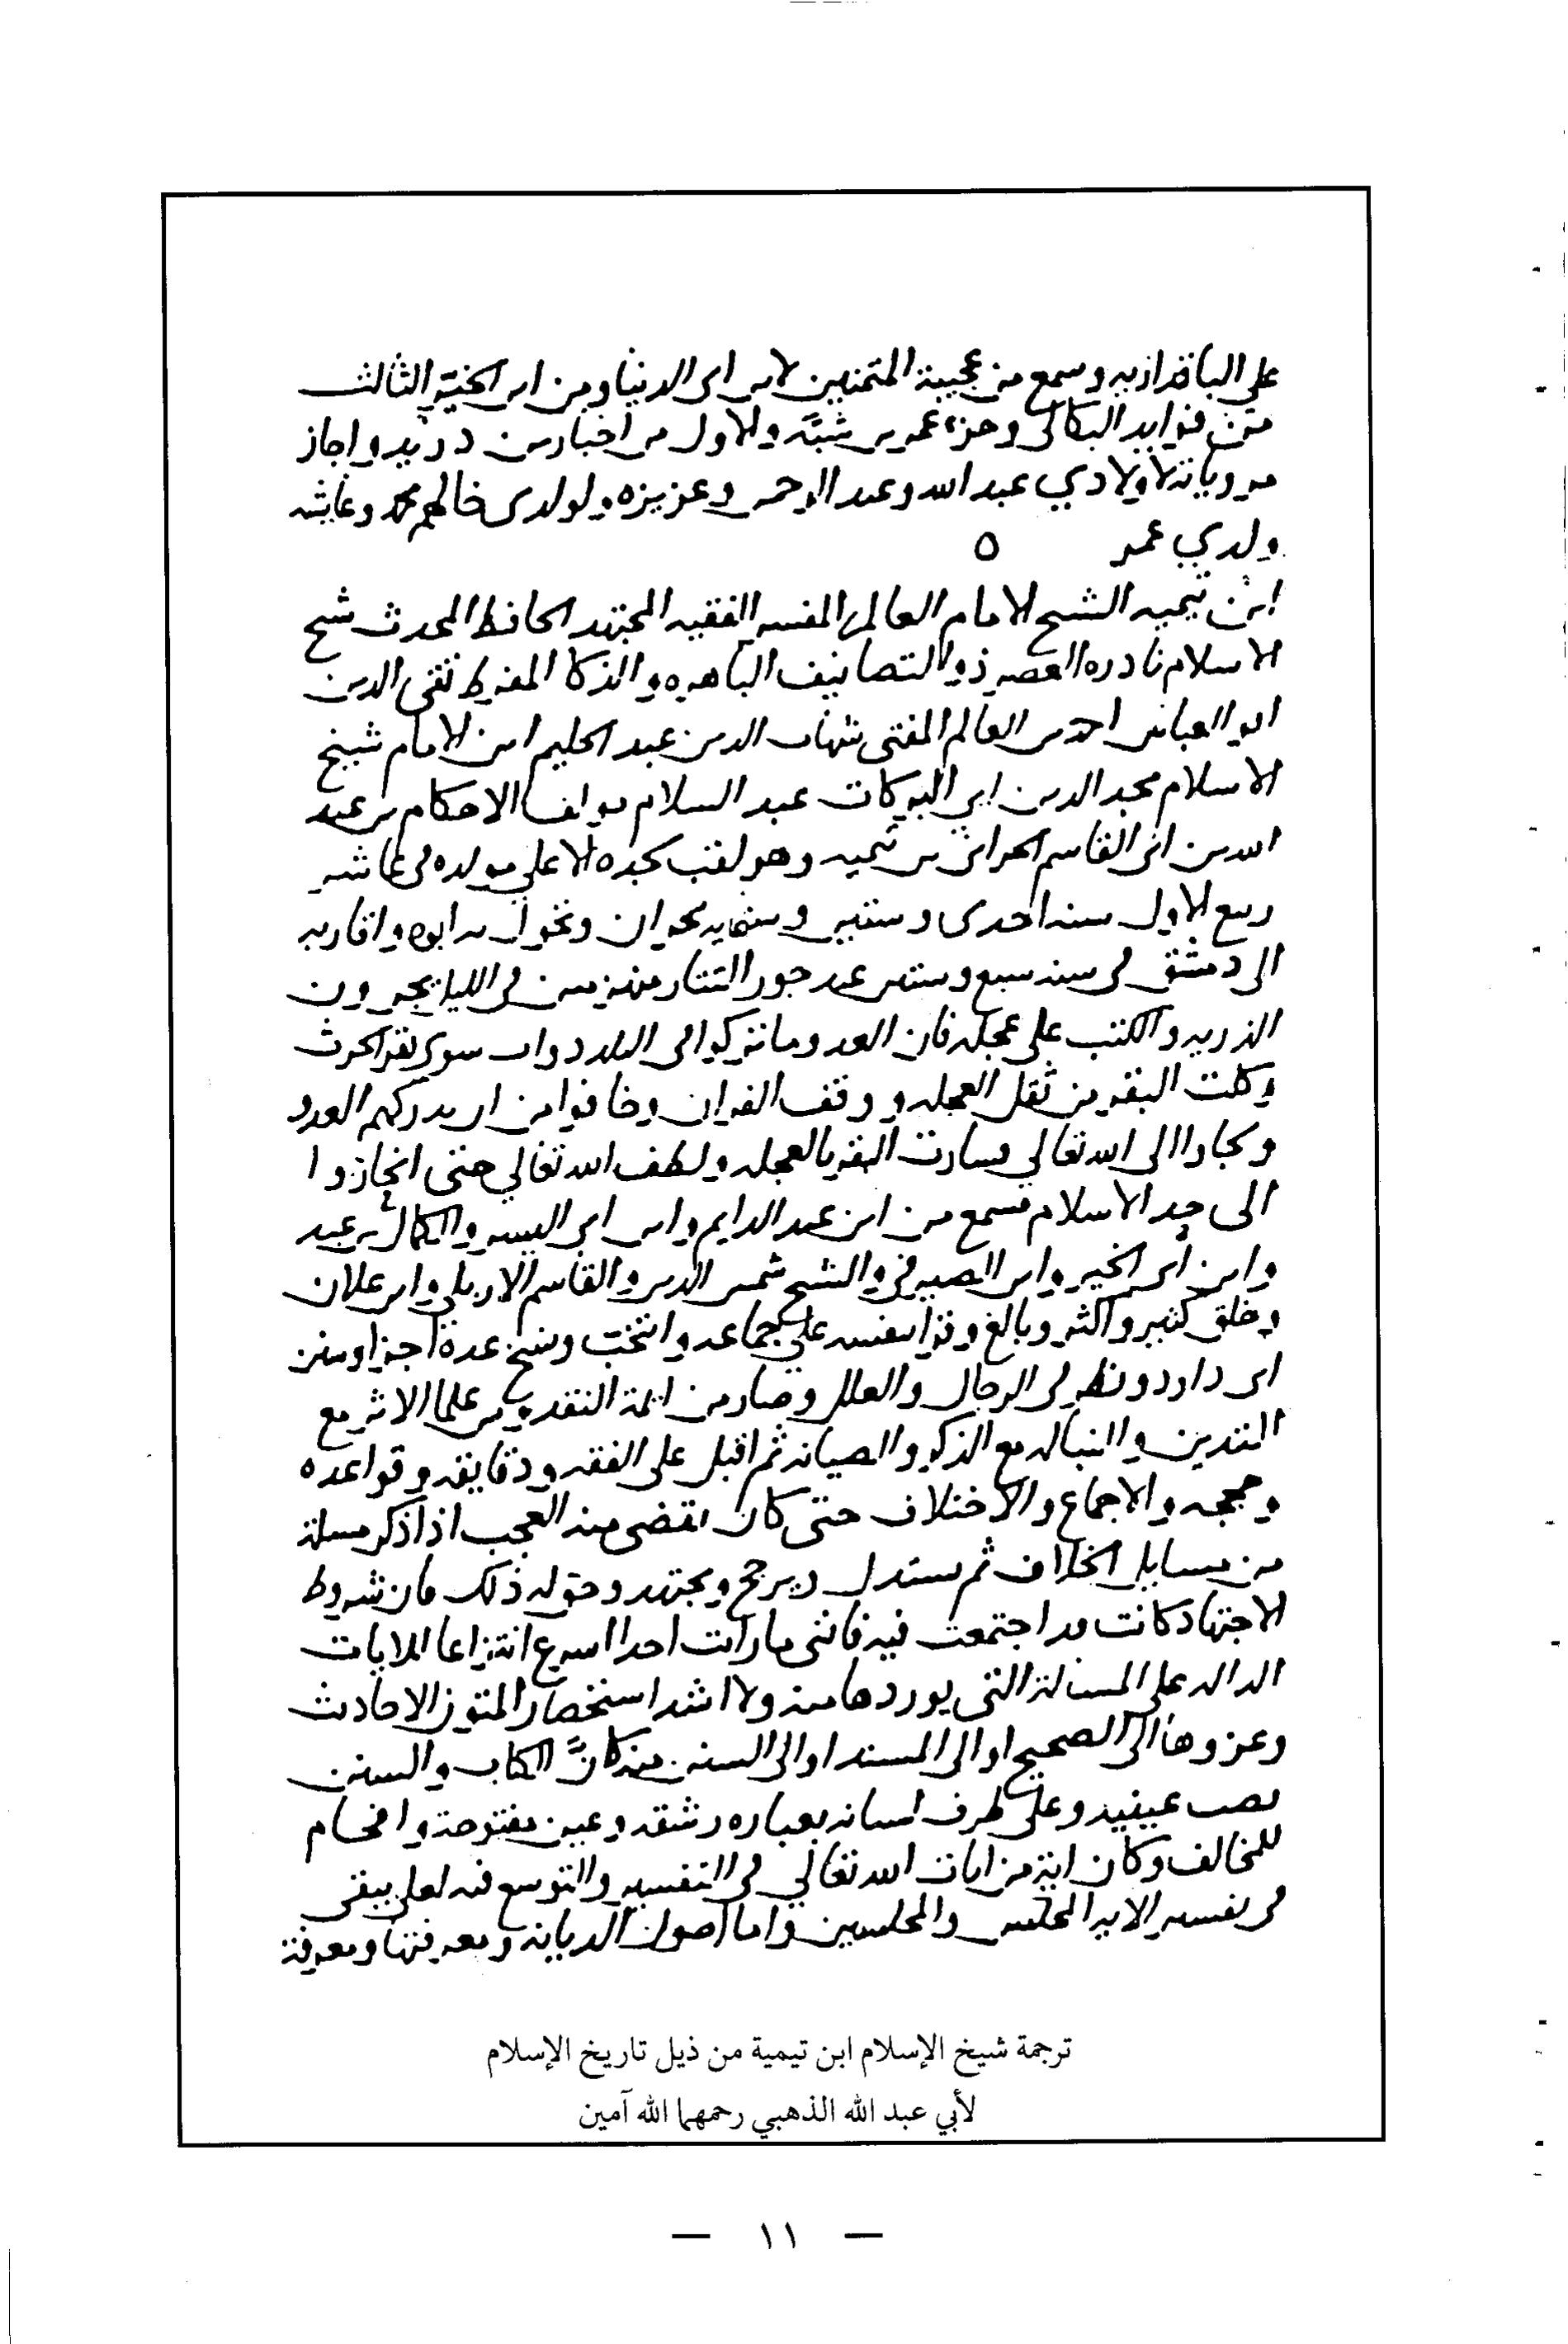 على الباقدازيه وسمع من عجيبة المتمنين لابن ابى الدنيا ومن ابن الخير الثالث
من فوايد البكالى وجزء عمر بن شبة والاول من اخبار بن دريد واجاز
مروياته لاولادي عبد الله وعبد الرحمن وعزيزه ولولدى خالهم محمد وعايشه
ولدي عمر ه
ابن تيميه الشيخ الامام العالم المفسر الفقيه المجتهد الحافظ المحدث شيخ
الاسلام نادره العصر ذو التصانيف الباهره والذكا المفرط تقى الدين
ابو العباس احمد بن العالم المفتى شهاب الدين عبد الحليم ابن الامام شيخ
الاسلام مجد الدين ابي البركات عبد السلام مولف الاحكام بن عبد
الله بن ابى القاسم الحرانى بن تيميه وهو لقب لجده الاعلي مولده فى عاشر
ربيع الاول سنه احدى وستين وستمايه بحران وتحول به ابوه واقاربه
الى دمشق فى سنه سبع وستين عند جور التتار منهزمين فى الليل يجرون
الذريه والكتب على عجله فان العدو ما تركوا فى البلد دواب سوى بقر الحرث
وكلت البقر من ثقل العجله ووقف الفران وخافوا من ان يدركهم العدو
ولجاوا الى الله تعالي فسارت البقر بالعجله ولطف الله تعالي حتى انحازوا
الى حد الاسلام فسمع من ابن عبد الدايم وابن ابى اليسر والكمال بن عبد
وابن ابى الخير وابن الصيرفى والشيخ شمس الدين والقاسم الاربلي وابن علان
وخلق كثير واكثر وبالغ وقرا بنفسه على جماعه وانتخب ونسخ عدة اجزا وسنن
ابى داود ونظر فى الرجال والعلل وصار من ائمة النقد ومن علما الاثر مع
التدين والنباله مع الذكر والصيانه ثم اقبل على الفقه ودقايقه وقواعده
وحججه والاجماع والاختلاف حتى كان يقضى منه العجب اذا ذكر مسلة
من مسايل الخلاف ثم يستدل ويرجح ويجتهد وحق له ذلك فان شروط
الاجتهاد كانت قد اجتمعت فيه فاننى ما رايت احدا اسرع انتزاعا للايات
الداله على المسالة التى يوردها منه ولا اشد استحضارا لمتون الاحاديث
وعزوها الى الصحيح او الى المسند او الى السنن منه كان الكتاب والسنن
نصب عينيه وعلى طرف لسانه بعباره رشقه وعين مفتوحة وافحام
للمخالف وكان اية من ايات الله تعالي فى التفسير والتوسع فيه لعله يبقى
فى تفسير الايه المجلس والمجلسين واما اصول الديانه ومعرفتها ومعرفة
ترجمة شيخ الإسلام ابن تيمية من ذيل تاريخ الإسلام
لأبي عبد الله الذهبي رحمهما الله آمين
— ١١ —